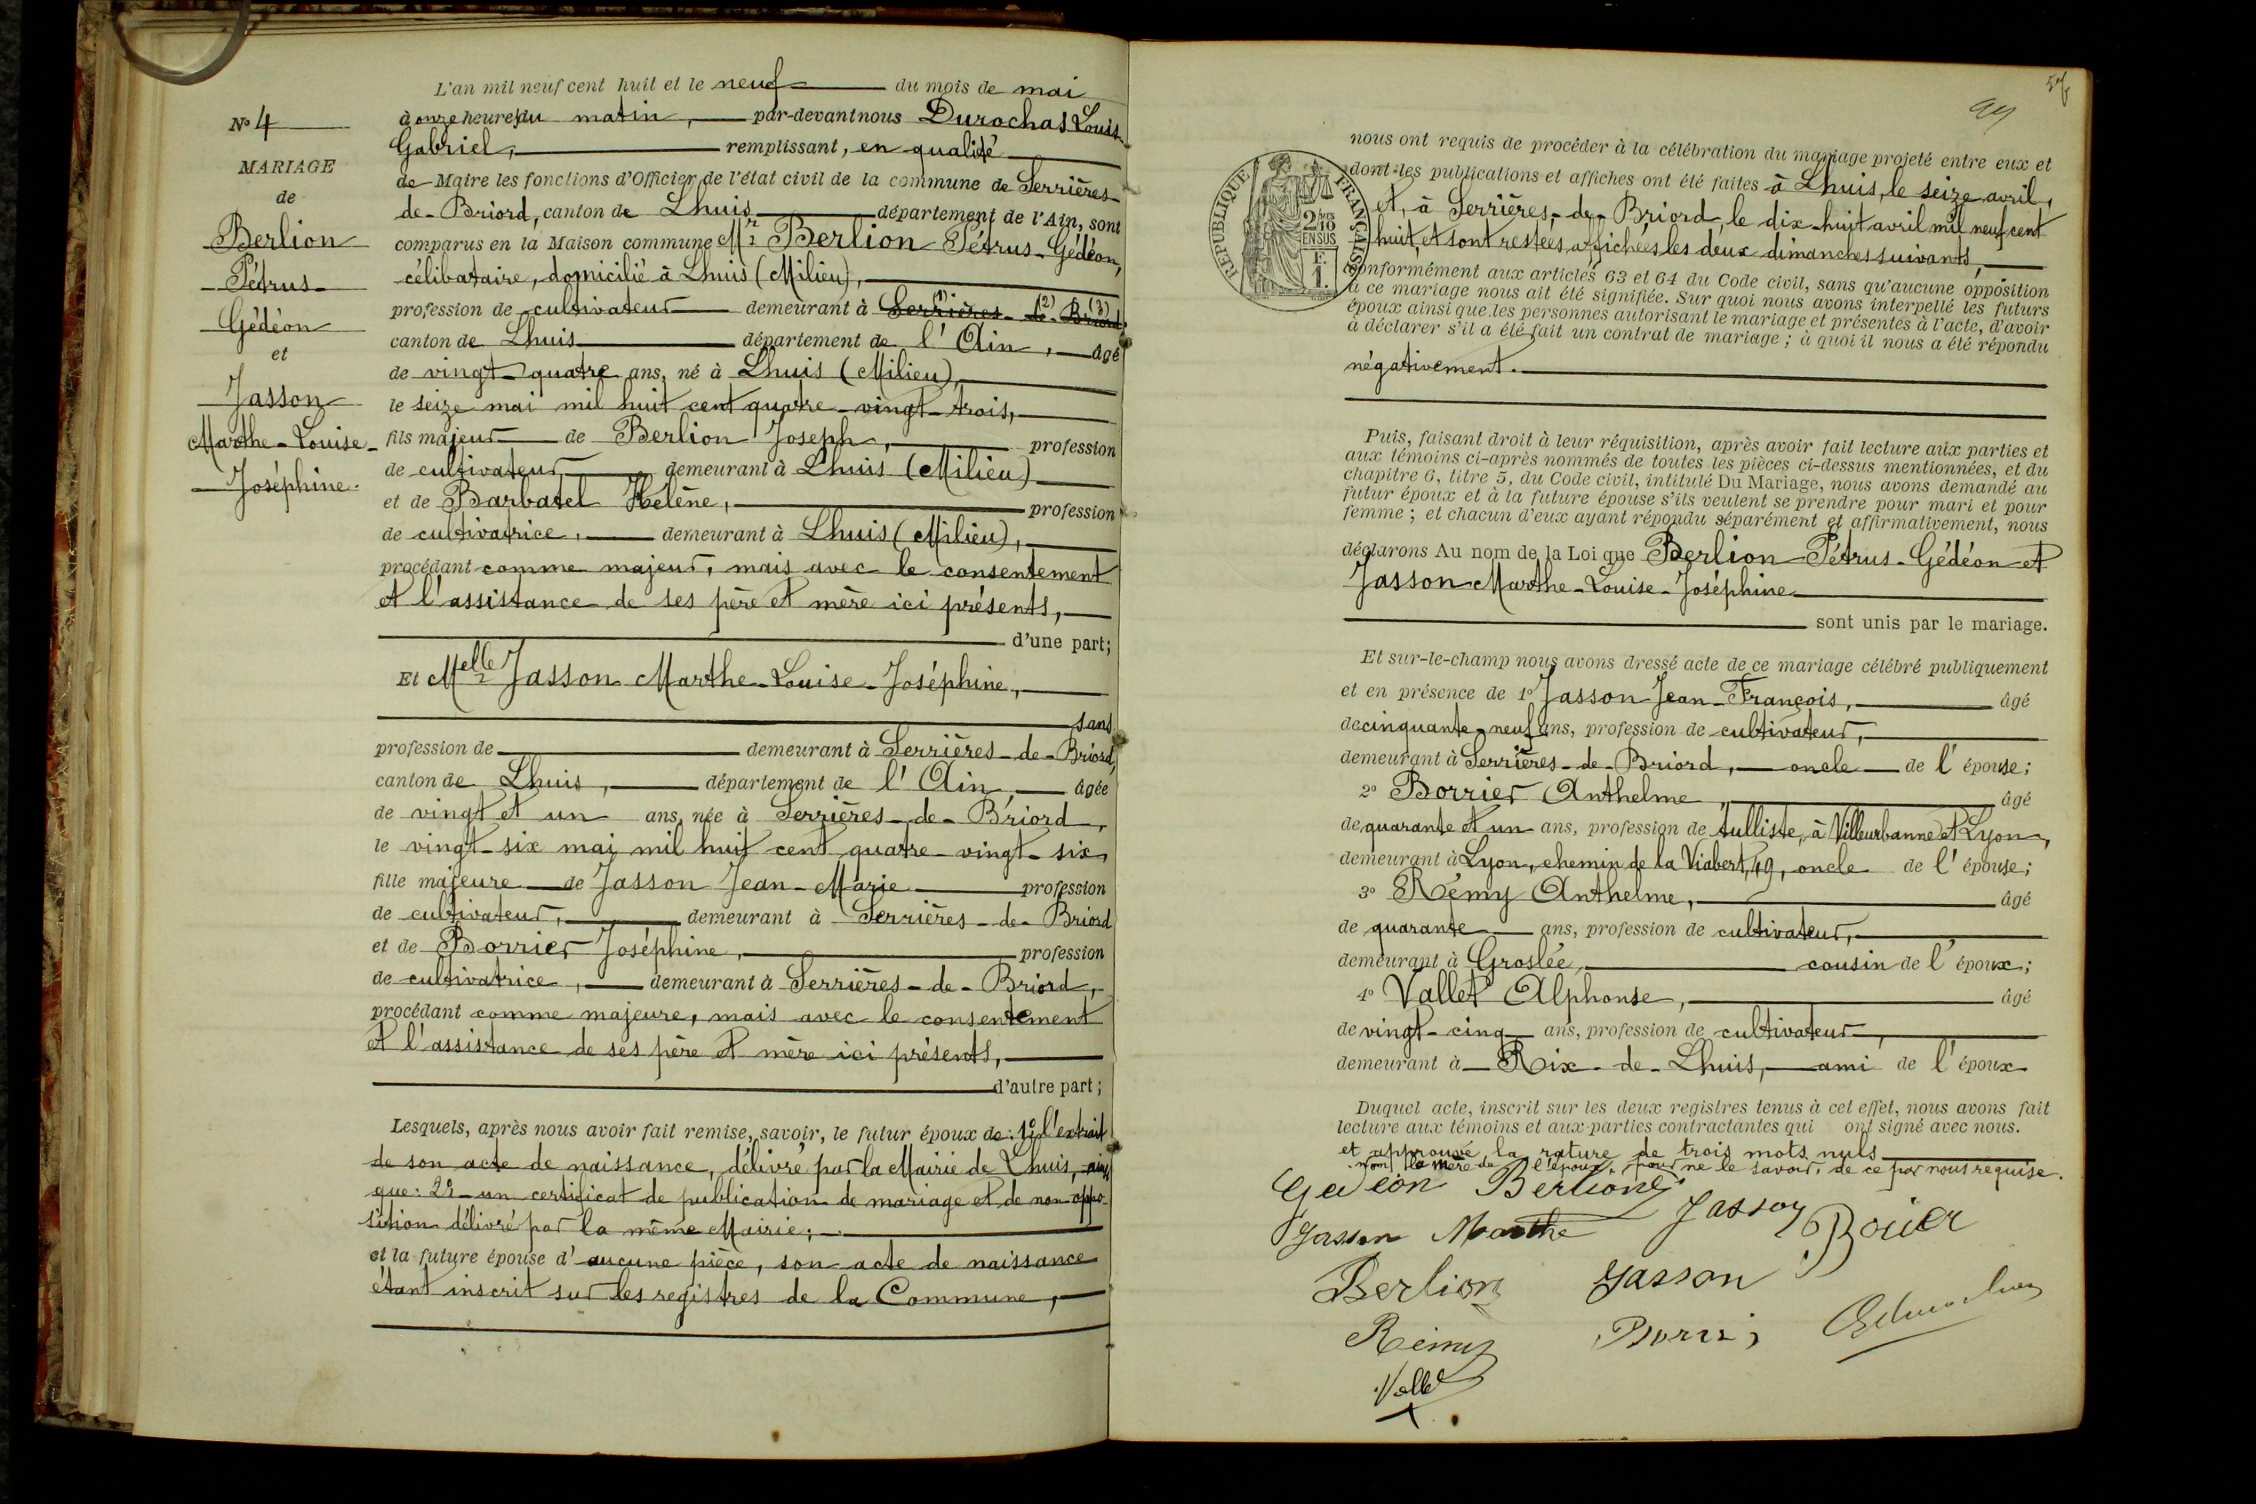 L'an mil neuf cent huit et le neuf du mois de mai
N° 4
à onze heures du matin, par-devant nous Durochas Louis
Gabriel, remplissant, en qualité
MARIAGE
de Maire les fonctions d'Officier de l'état civil de la commune de Serrières-
de
de-Briord, canton de Lhuis département de l'Ain, sont
Berlion
comparus en la Maison commune Mr Berlion Pétrus-Gédéon,
Pétrus-
célibataire, domicilié à Lhuis (Milieu),
Gédéon
profession de cultivateur demeurant à Serrières (1) de (2) Briord (3)
et
canton de Lhuis département de l'Ain, âgé
Jasson
de vingt-quatre ans, né à Lhuis (Milieu),
Marthe-Louise-
le seize mai mil huit cent quatre-vingt-trois,
Joséphine.
fils majeur de Berlion Joseph, profession
de cultivateur demeurant à Lhuis (Milieu)
et de Barbatel Hélène, profession
de cultivatrice, demeurant à Lhuis (Milieu),
procédant comme majeur, mais avec le consentement
et l'assistance de ses père et mère ici présents,
d'une part;
Et Melle Jasson Marthe-Louise-Joséphine,
sans
profession de demeurant à Serrières-de-Briord,
canton de Lhuis, département de l'Ain, âgée
de vingt et un ans, née à Serrières-de-Briord,
le vingt-six mai mil huit cent quatre-vingt-six,
fille majeure de Jasson Jean-Marie profession
de cultivateur, demeurant à Serrières-de-Briord
et de Borrier Joséphine, profession
de cultivatrice, demeurant à Serrières-de-Briord,
procédant comme majeure, mais avec le consentement
et l'assistance de ses père et mère ici présents,
d'autre part;
Lesquels, après nous avoir fait remise, savoir, le futur époux de: 1° l'extrait
de son acte de naissance, délivré par la Mairie de Lhuis, ainsi
que: 2°- un certificat de publication de mariage et de non-oppo-
sition délivré par la même Mairie;
et la future épouse d'aucune pièce, son acte de naissance
étant inscrit sur les registres de la Commune,
RÉPUBLIQUE FRANÇAISE
2/10
EN SUS
F.
1.
nous ont requis de procéder à la célébration du mariage projeté entre eux et
dont les publications et affiches ont été faites à Lhuis, le seize avril,
et, à Serrières-de-Briord, le dix-huit avril mil neuf cent
huit, et sont restées affichées les deux dimanches suivants,
conformément aux articles 63 et 64 du Code civil, sans qu'aucune opposition
à ce mariage nous ait été signifiée. Sur quoi nous avons interpellé les futurs
époux ainsi que les personnes autorisant le mariage et présentes à l'acte, d'avoir
à déclarer s'il a été fait un contrat de mariage; à quoi il nous a été répondu
négativement.
Puis, faisant droit à leur réquisition, après avoir fait lecture aux parties et
aux témoins ci-après nommés de toutes les pièces ci-dessus mentionnées, et du
chapitre 6, titre 5, du Code civil, intitulé Du Mariage, nous avons demandé au
futur époux et à la future épouse s'ils veulent se prendre pour mari et pour
femme; et chacun d'eux ayant répondu séparément et affirmativement, nous
déclarons Au nom de la Loi que Berlion Pétrus-Gédéon et
Jasson Marthe-Louise-Joséphine
sont unis par le mariage.
Et sur-le-champ nous avons dressé acte de ce mariage célébré publiquement
et en présence de 1° Jasson Jean-François, âgé
de cinquante-neuf ans, profession de cultivateur,
demeurant à Serrières-de-Briord, oncle de l'épouse;
2° Borrier Anthelme, âgé
de quarante et un ans, profession de tulliste, à Villeurbanne et Lyon,
demeurant à Lyon, chemin de la Viabert, 49, oncle de l'épouse;
3° Rémy Anthelme, âgé
de quarante ans, profession de cultivateur,
demeurant à Groslée, cousin de l'époux;
4° Vallet Alphonse, âgé
de vingt-cinq ans, profession de cultivateur,
demeurant à Rix-de-Lhuis, ami de l'époux
Duquel acte, inscrit sur les deux registres tenus à cet effet, nous avons fait
lecture aux témoins et aux parties contractantes qui ont signé avec nous.
et approuvé la rature de trois mots nuls
non la mère de l'époux, pour ne le savoir, de ce par nous requise.
Gédéon Berlion
Jasson Marthe Jasson
Berlion Jasson
Rémy
Vallet